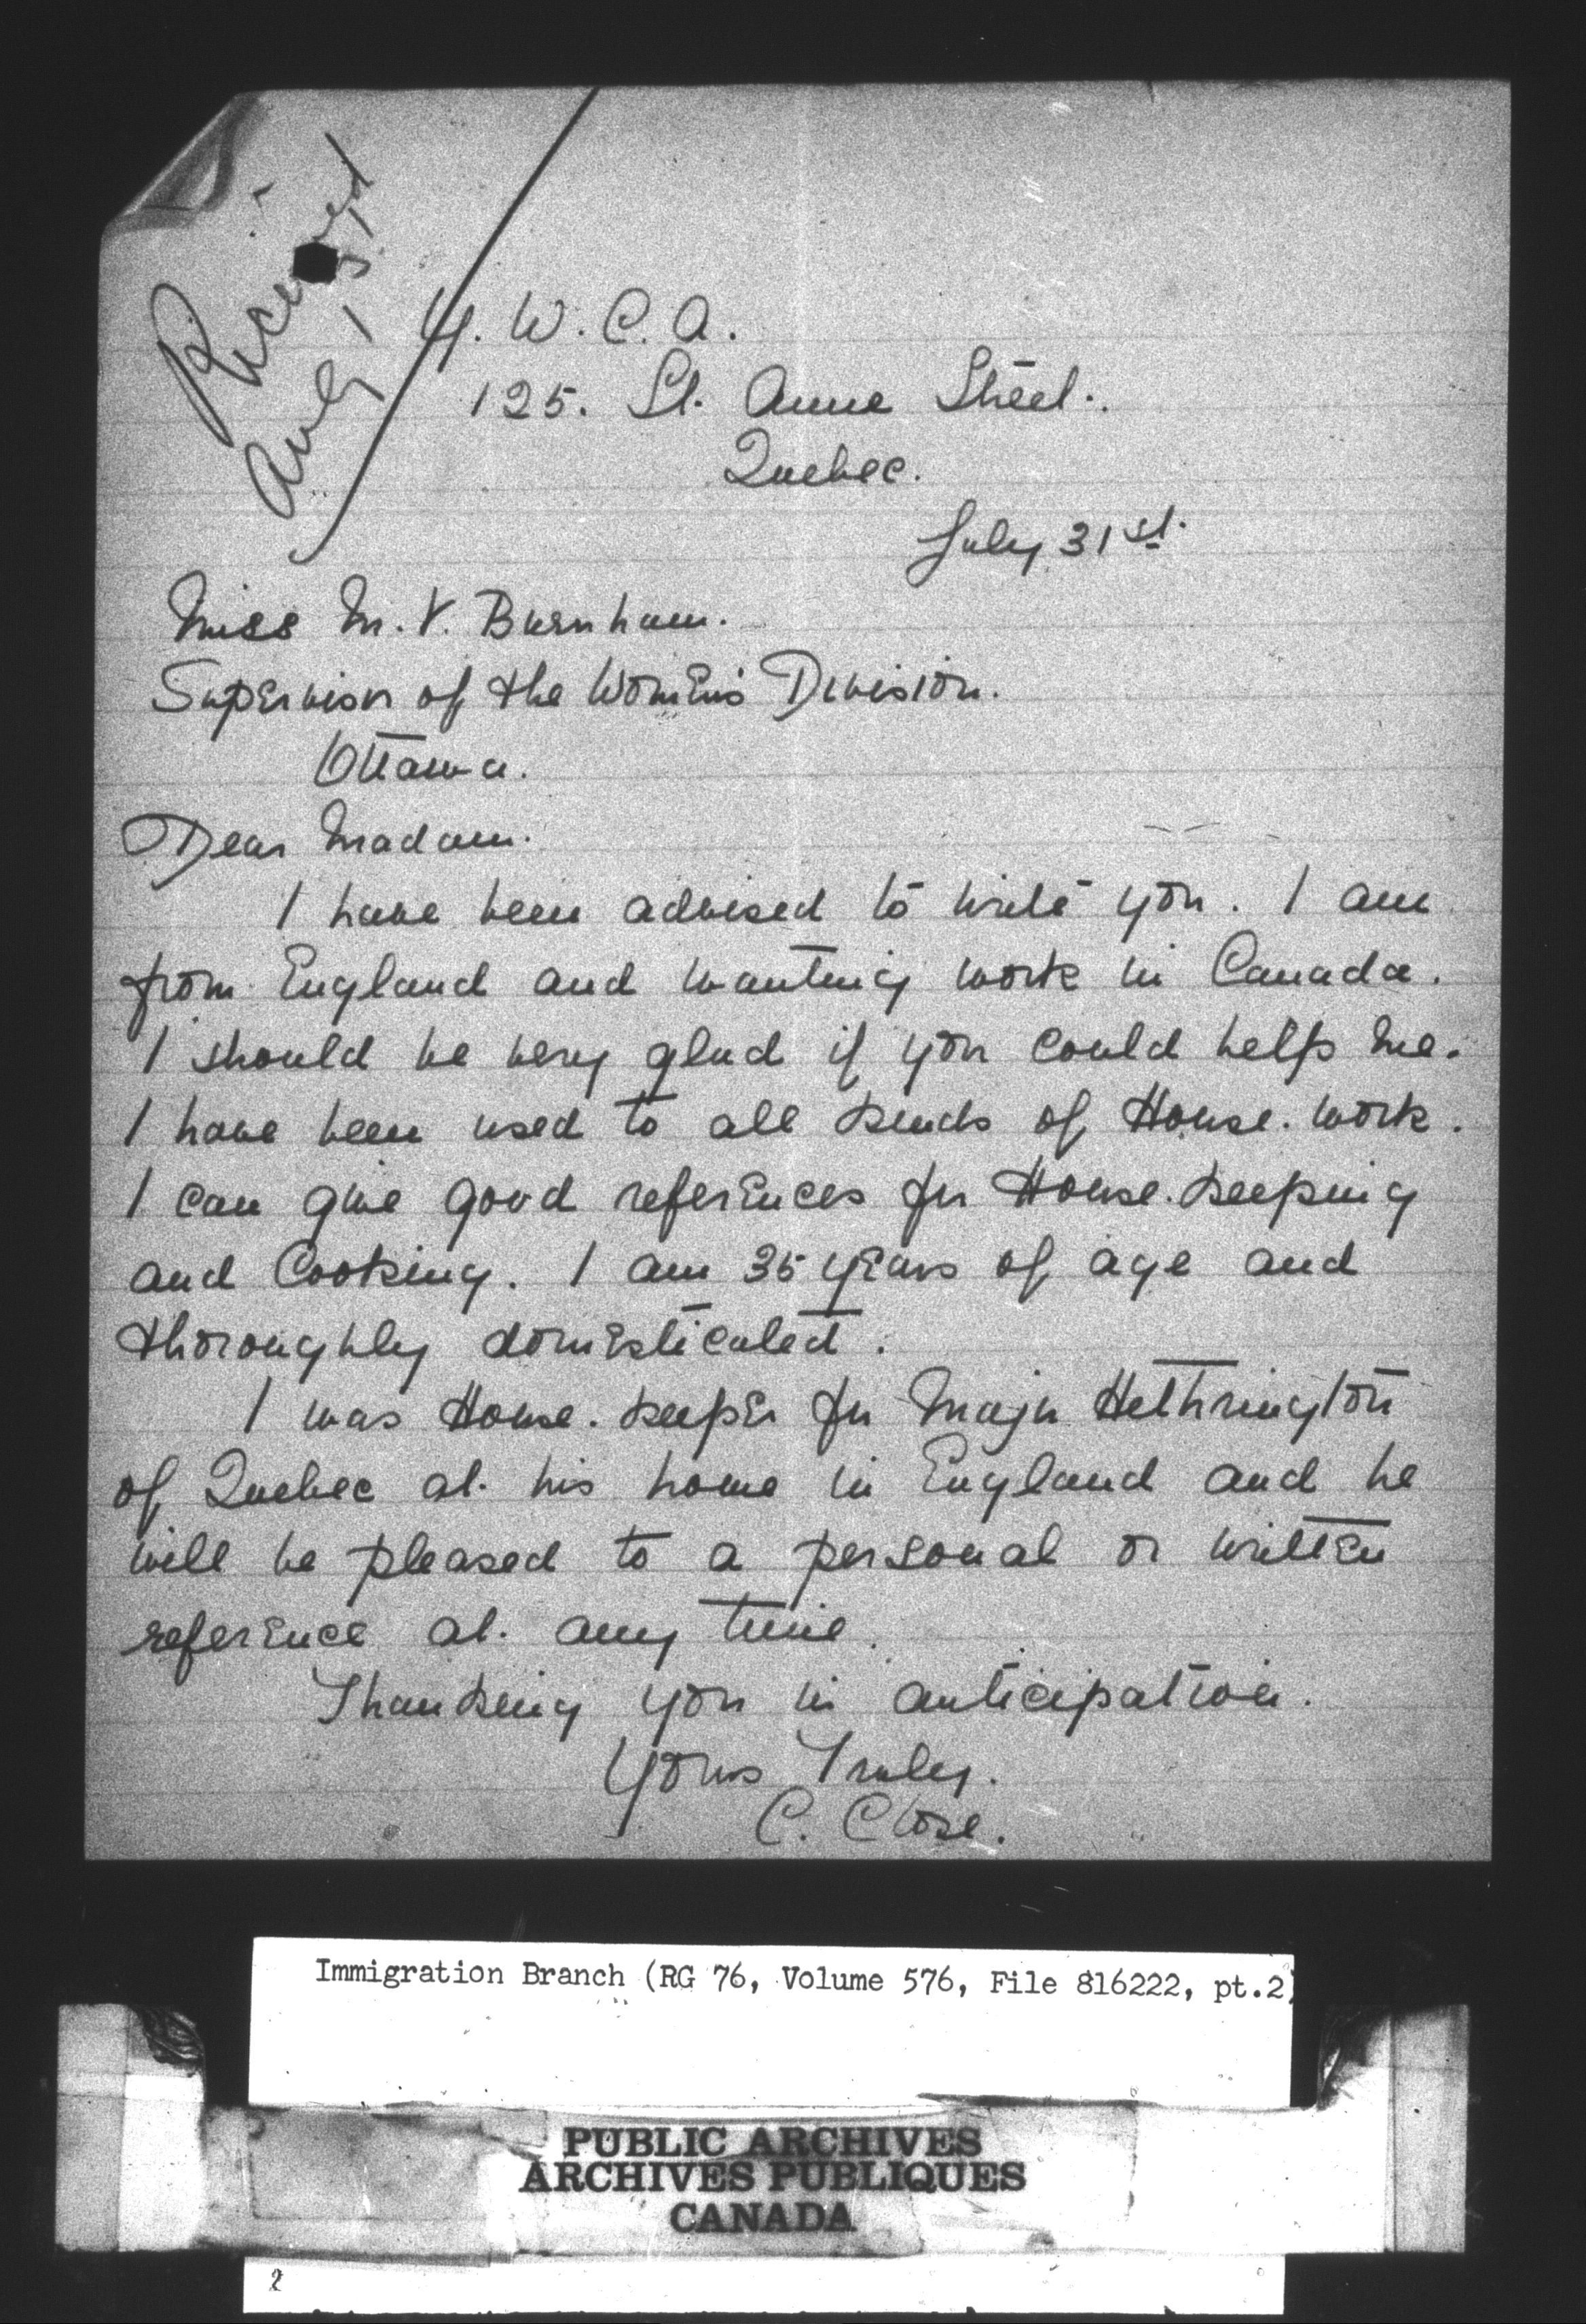 Received
Aug 1st
Y. W. C. A.
125. St. Anne Street.
Quebec.
July 31st.
Miss M. V. Burnham.
Supervisor of the Women's Division.
Ottawa.
Dear Madam.
I have been advised to write you. I am
from England and wanting work in Canada.
I should be very glad if you could help me.
I have been used to all kinds of House. work.
I can give good references for House. keeping
and Cooking. I am 35 years of age and
thoroughly domesticated.
I was House. keeper for Major Hethrington
of Quebec at. his home in England and he
will be pleased to a personal or written
reference at. any time.
Thanking you in anticipation.
Yours Truly.
C. Close.
Immigration Branch (RG 76, Volume 576, File 816222, pt.2)
PUBLIC ARCHIVES
ARCHIVES PUBLIQUES
CANADA
2